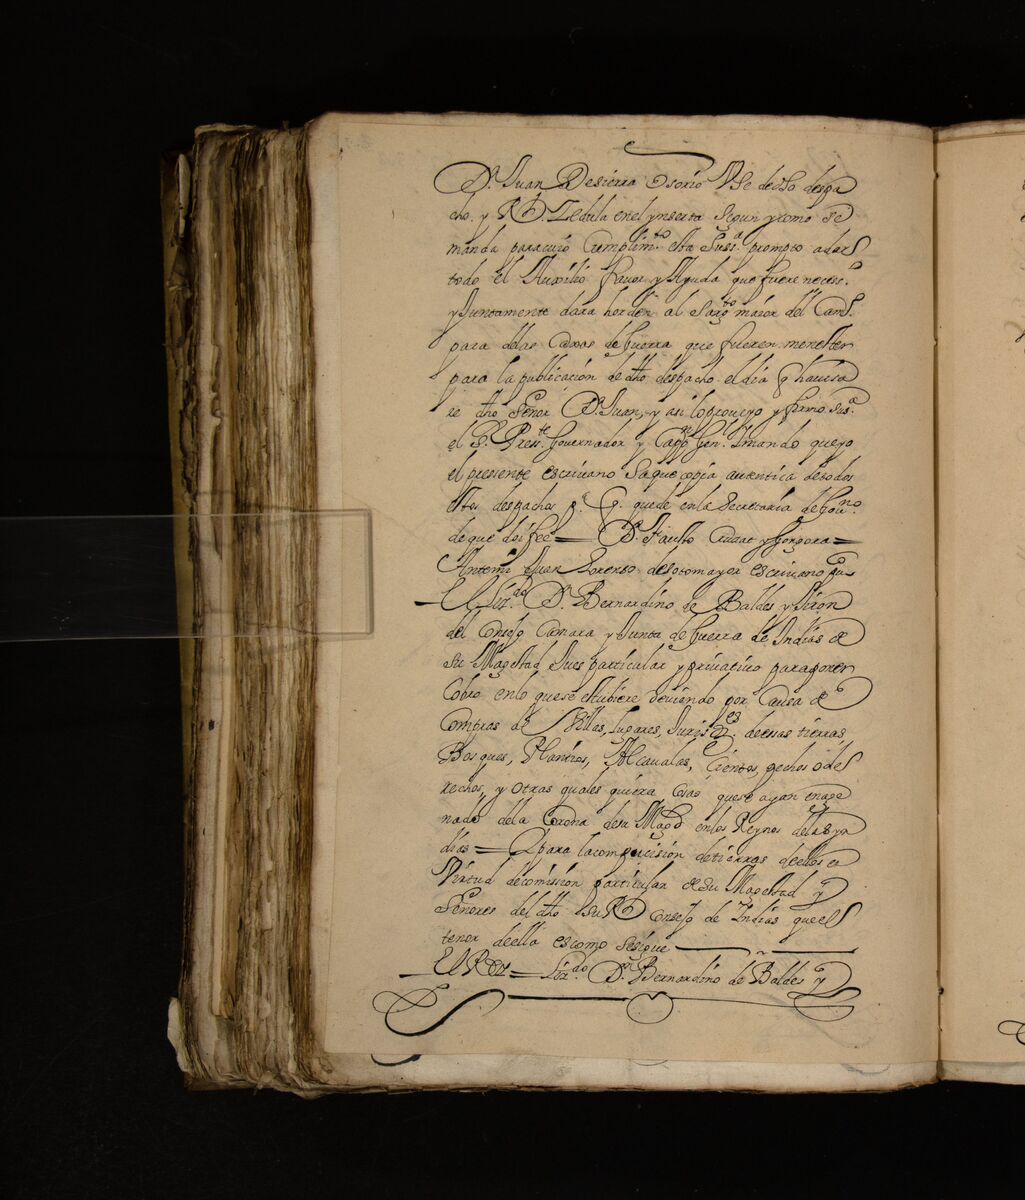 Dn. Juan De sierra Osorio Use de dho despa
cho. y Rl. Zedula en el ynserta segun y como se
manda para cuio Cumplimto. esta Su ssa. prompto a dar
todo el Auxilio favor, y Ayuda que fuere neceso.
y Juntamente dara horden al Sargto. maior del Campo.
para delas Caxas de Guerra que fueren menester
para la publicacion de dho despacho. el dia q havisa
re dho Señor Dn. Juan, y asi lo proueyo y firmo Su sa.
el Sr. Presste. Governador y Cappn. Genl. I mando que yo
el presente escriuano Saque copia autentica de todos
estos despachos p. q. quede en la Secretaria de Gouno.
de que doi feê = Dn. Fausto Cruzat y Gongora =
Antemi Juan Lorenso de sotomayor escriuano puco
El Lizdo. Dn. Bernardino de Baldes y Jiron
del Consejo Camara y Junta de Guerra de Indias de
Su Magestad Jues particular y priuatiuo para poner
Cobro en lo que se estubiere deviendo por Causa de
Compras de Villas, Lugares, Jurisdnes. deesas tierras
Bosques, Plantios, Alcaualas, Cientos, pechos o de
rechos, y otras quales quiera Cosas que se ayan enage
nado dela Corona desu Magd en los Reynos delas yn
dias = Y para la composision de tierras deellos en
Virtud de comission particular de Su Magestad y
Señores del dho Su Rl Consejo de Indias que el
tenor deella es como se sigue
El Rey = Lizdo. Dn. Bernardino de Baldes y